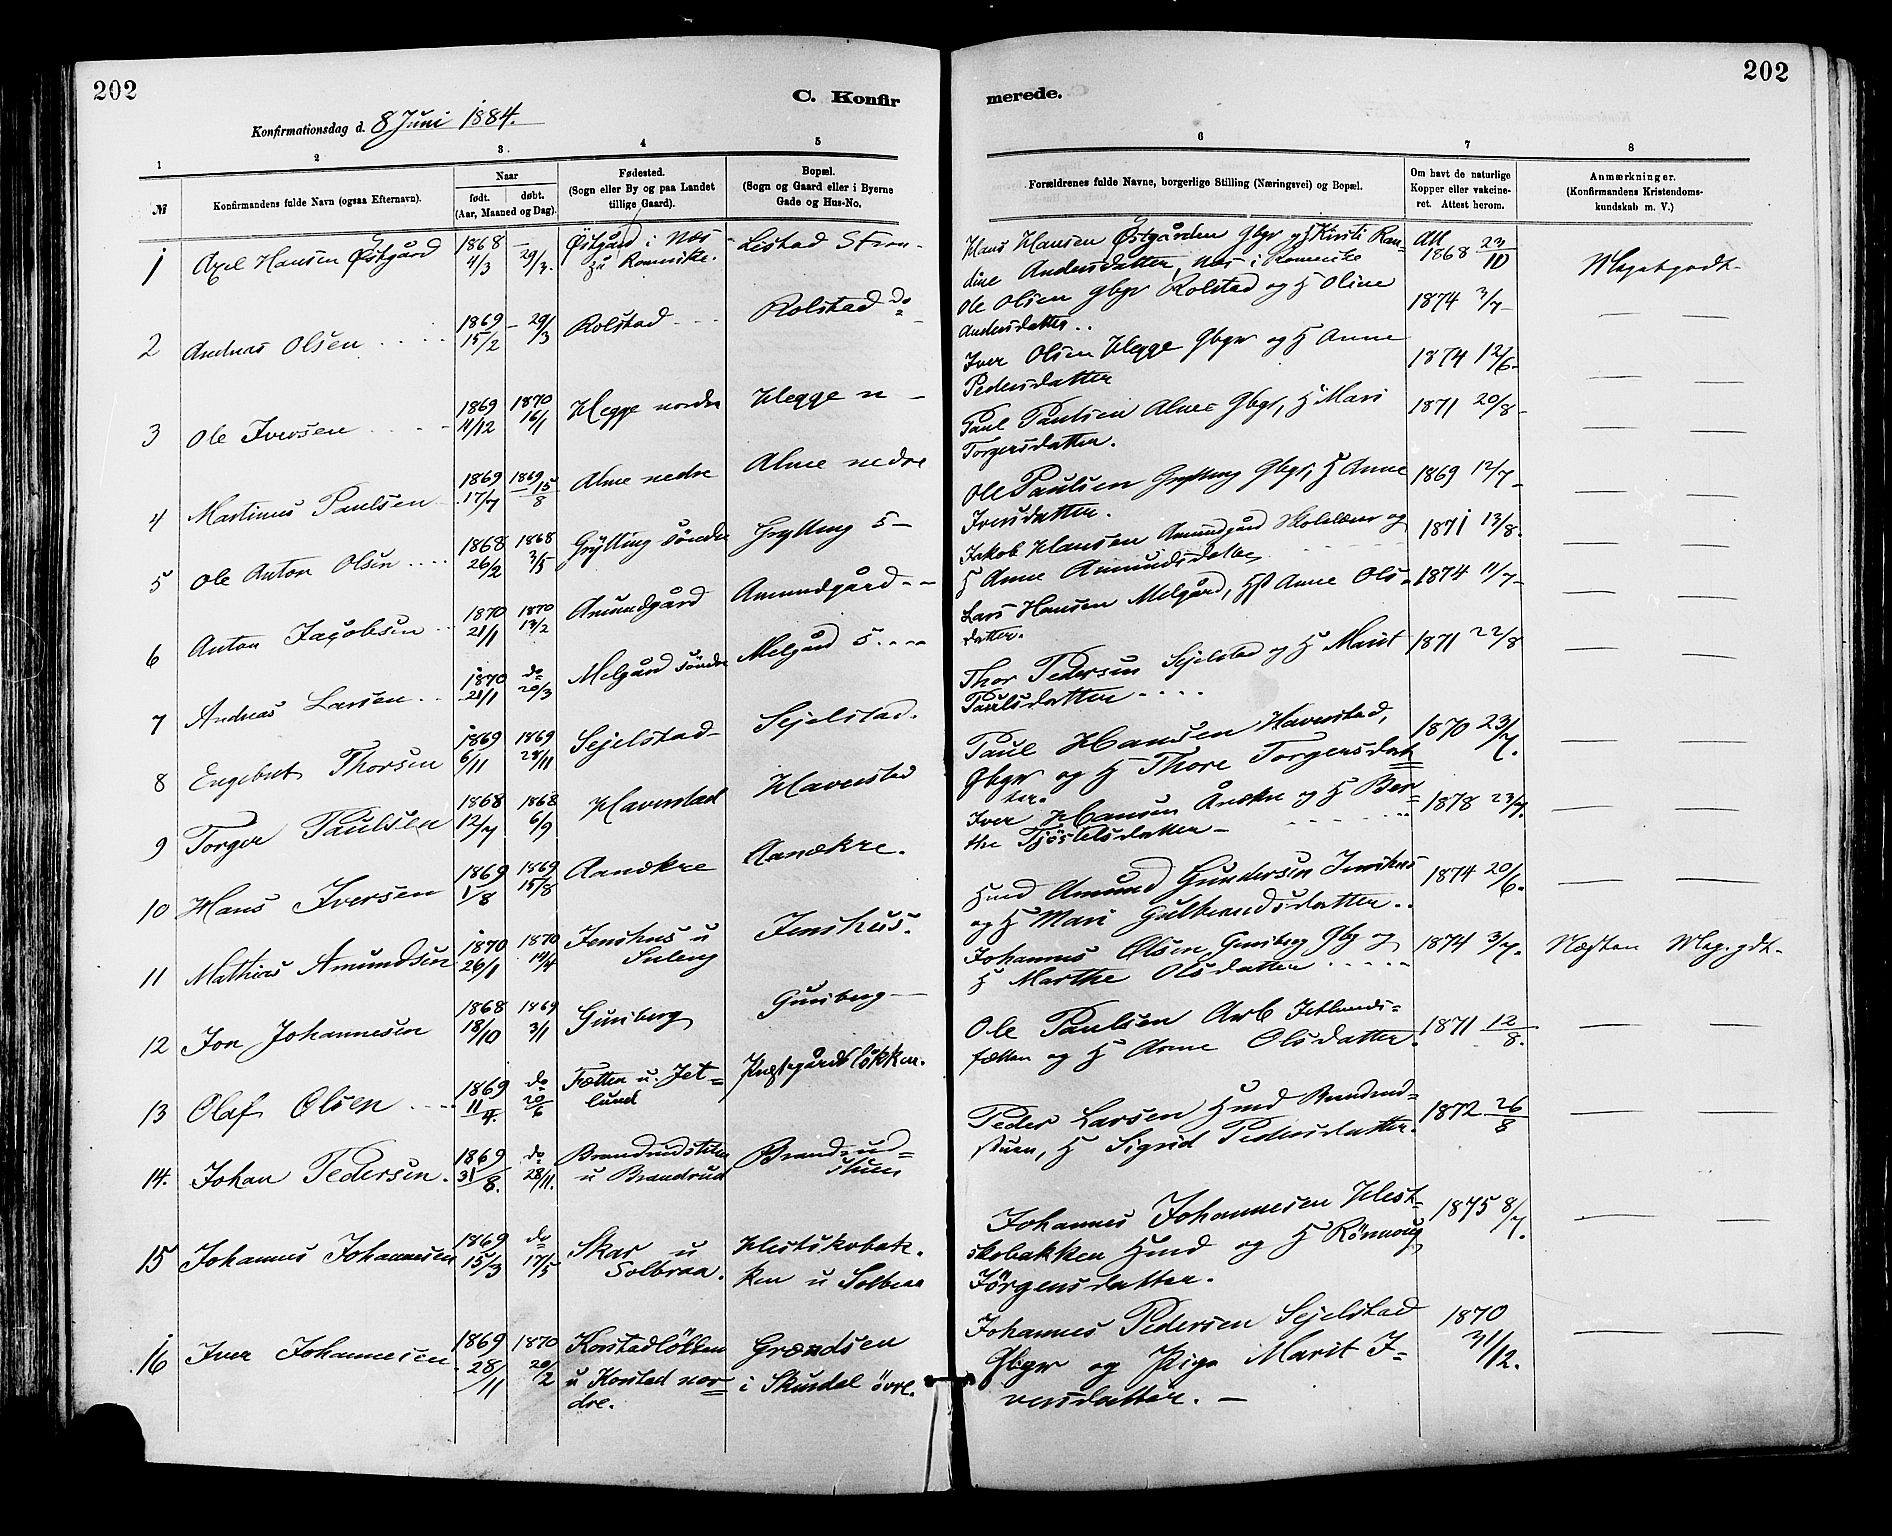 202
202
C. Konfir
merede.
Konfirmationsdag d. 8 Juni 1884.
1
2
3.
4
5
6
7
8
№
Konfirmandens fulde Navn (ogsaa Efternavn).
Naar
født. døbt.
(Aar, Maaned og Dag).
Fødested.
(Sogn eller By og paa Landet
tillige Gaard).
Bopæl.
(Sogn og Gaard eller i Byerne
Gade og Hus-No.
Forældrenes fulde Navne, borgerlige Stilling (Næringsvei) og Bopæl.
Om havt de naturlige
Kopper eller vakcine-
ret. Attest herom.
Anmærkninger.
(Konfirmandens Kristendoms-
kundskab m. V.)
1 Axel Hansen Østgård
1868 4/3
— 29/3.
Østgård i Næs
på Romerike.
Listad
Hans Hansen Østgården Gbgr og H Kirsti Ran-
dine Andersdatter, Næs i Romerike
Att 1868 23/10
Meget godt.
2 Andreas Olsen
1869 15/2
— 29/3
Rolstad
Rolstad do
Ole Olsen Gbgr Rolstad og H Oline
Andersdatter
1874 3/7
— —
3 Ole Iversen
1869 11/12
1870 16/1
Hegge nordre
Hegge n —
Iver Olsen Hegge Gbgr og H Anne
Pedersdatter
1874 12/6
— —
4 Martinus Paulsen
1869 17/7
1869 15/8
Alme nedre
Alme nedre
Paul Paulsen Alme Gbgr, H Mari
Torgersdatter.
1871 20/8
— —
5 Ole Anton Olsen
1868 26/2
1868 3/5
Grytting søndre
Grytting s —
Ole Paulsen Grytting Gbgr, H Anne
Iversdatter.
1869 12/7
— —
6 Anton Jacobsen
1870 21/1
1870 13/2
Amundgård
Amundgård
Jakob Hansen Amundgård Skolelærer og
H Anne Amundsdatter
1871 13/8.
— —
7 Andreas Larsen
1870 21/1
do 20/3
Melgård søndre
Melgård s.
Lars Hansen Melgård, Hst Anne Ols-
datter.
1874 11/7
— —
8 Engebret Thorsen
1869 6/11
1869 28/11
Sejelstad
Sejelstad.
Thor Pedersen Sejelstad og H Marit
Paulsdatter
1871 22/8
— —
9 Torger Paulsen
1868 12/7
1868 6/9
Haverstad
Haverstad
Paul Hansen Haverstad,
Gbgr og H Thore Torgersdat=
ter.
1870 23/7.
— —
10 Hans Iversen
1869 1/8
1869 15/8
Aanækre
Aanækre.
Iver Hansen Ånækre og H Ber=
the Tjöstelsdatter
1878 23/7.
— —
11 Mathias Amundsen
1870 26/1
1870 18/4
Jenshus u
Suleng
Jenshus.
Hmd Amund Gundersen Jenshus
og H Mari Gulbrandsdatter
1874 20/6.
— —
12 Jon Johannesen
1868 18/10
1869 3/1
Gunsberg
Gunsberg
Johannes Olsen Gunsberg Gbg og
H Marthe Olsdatter
1874 3/7.
Næsten Meg. gdt.
13 Olaf Olsen
1869 11/4.
do 20/6
Fætten u. Jet=
lund
Præstegårdsløkken.
Ole Paulsen Arb Jetlunds=
fætten og H Anne Olsdatter.
1871 12/8.
— —
14. Johan Pedersen.
1869 31/8.
do 28/11.
Brandrudstuen
u Brandrud
Brandrud=
stuen
Peder Larsen Hmd Brandrud=
stuen, H Sigrid Pedersdatter.
1872 26/8
— —
15 Johannes Johannesen
1869 15/3
do 17/5
Skar u
Solbraa.
Hestskobak.
ken u Solbraa
Johannes Johannesen Hest=
skobakken Hmd og H Rønnoug
Jørgensdatter.
1875 8/7.
— —
16 Iver Johannesen
1869 28/11
1870 20/2
Korstadløkken
u Korstad nor=
dre.
Grændsen
i Skurdal övre.
Johannes Pedersen Sejelstad
Gbgr og Pige Marit I=
versdatter. —
1870 31/12.
— —